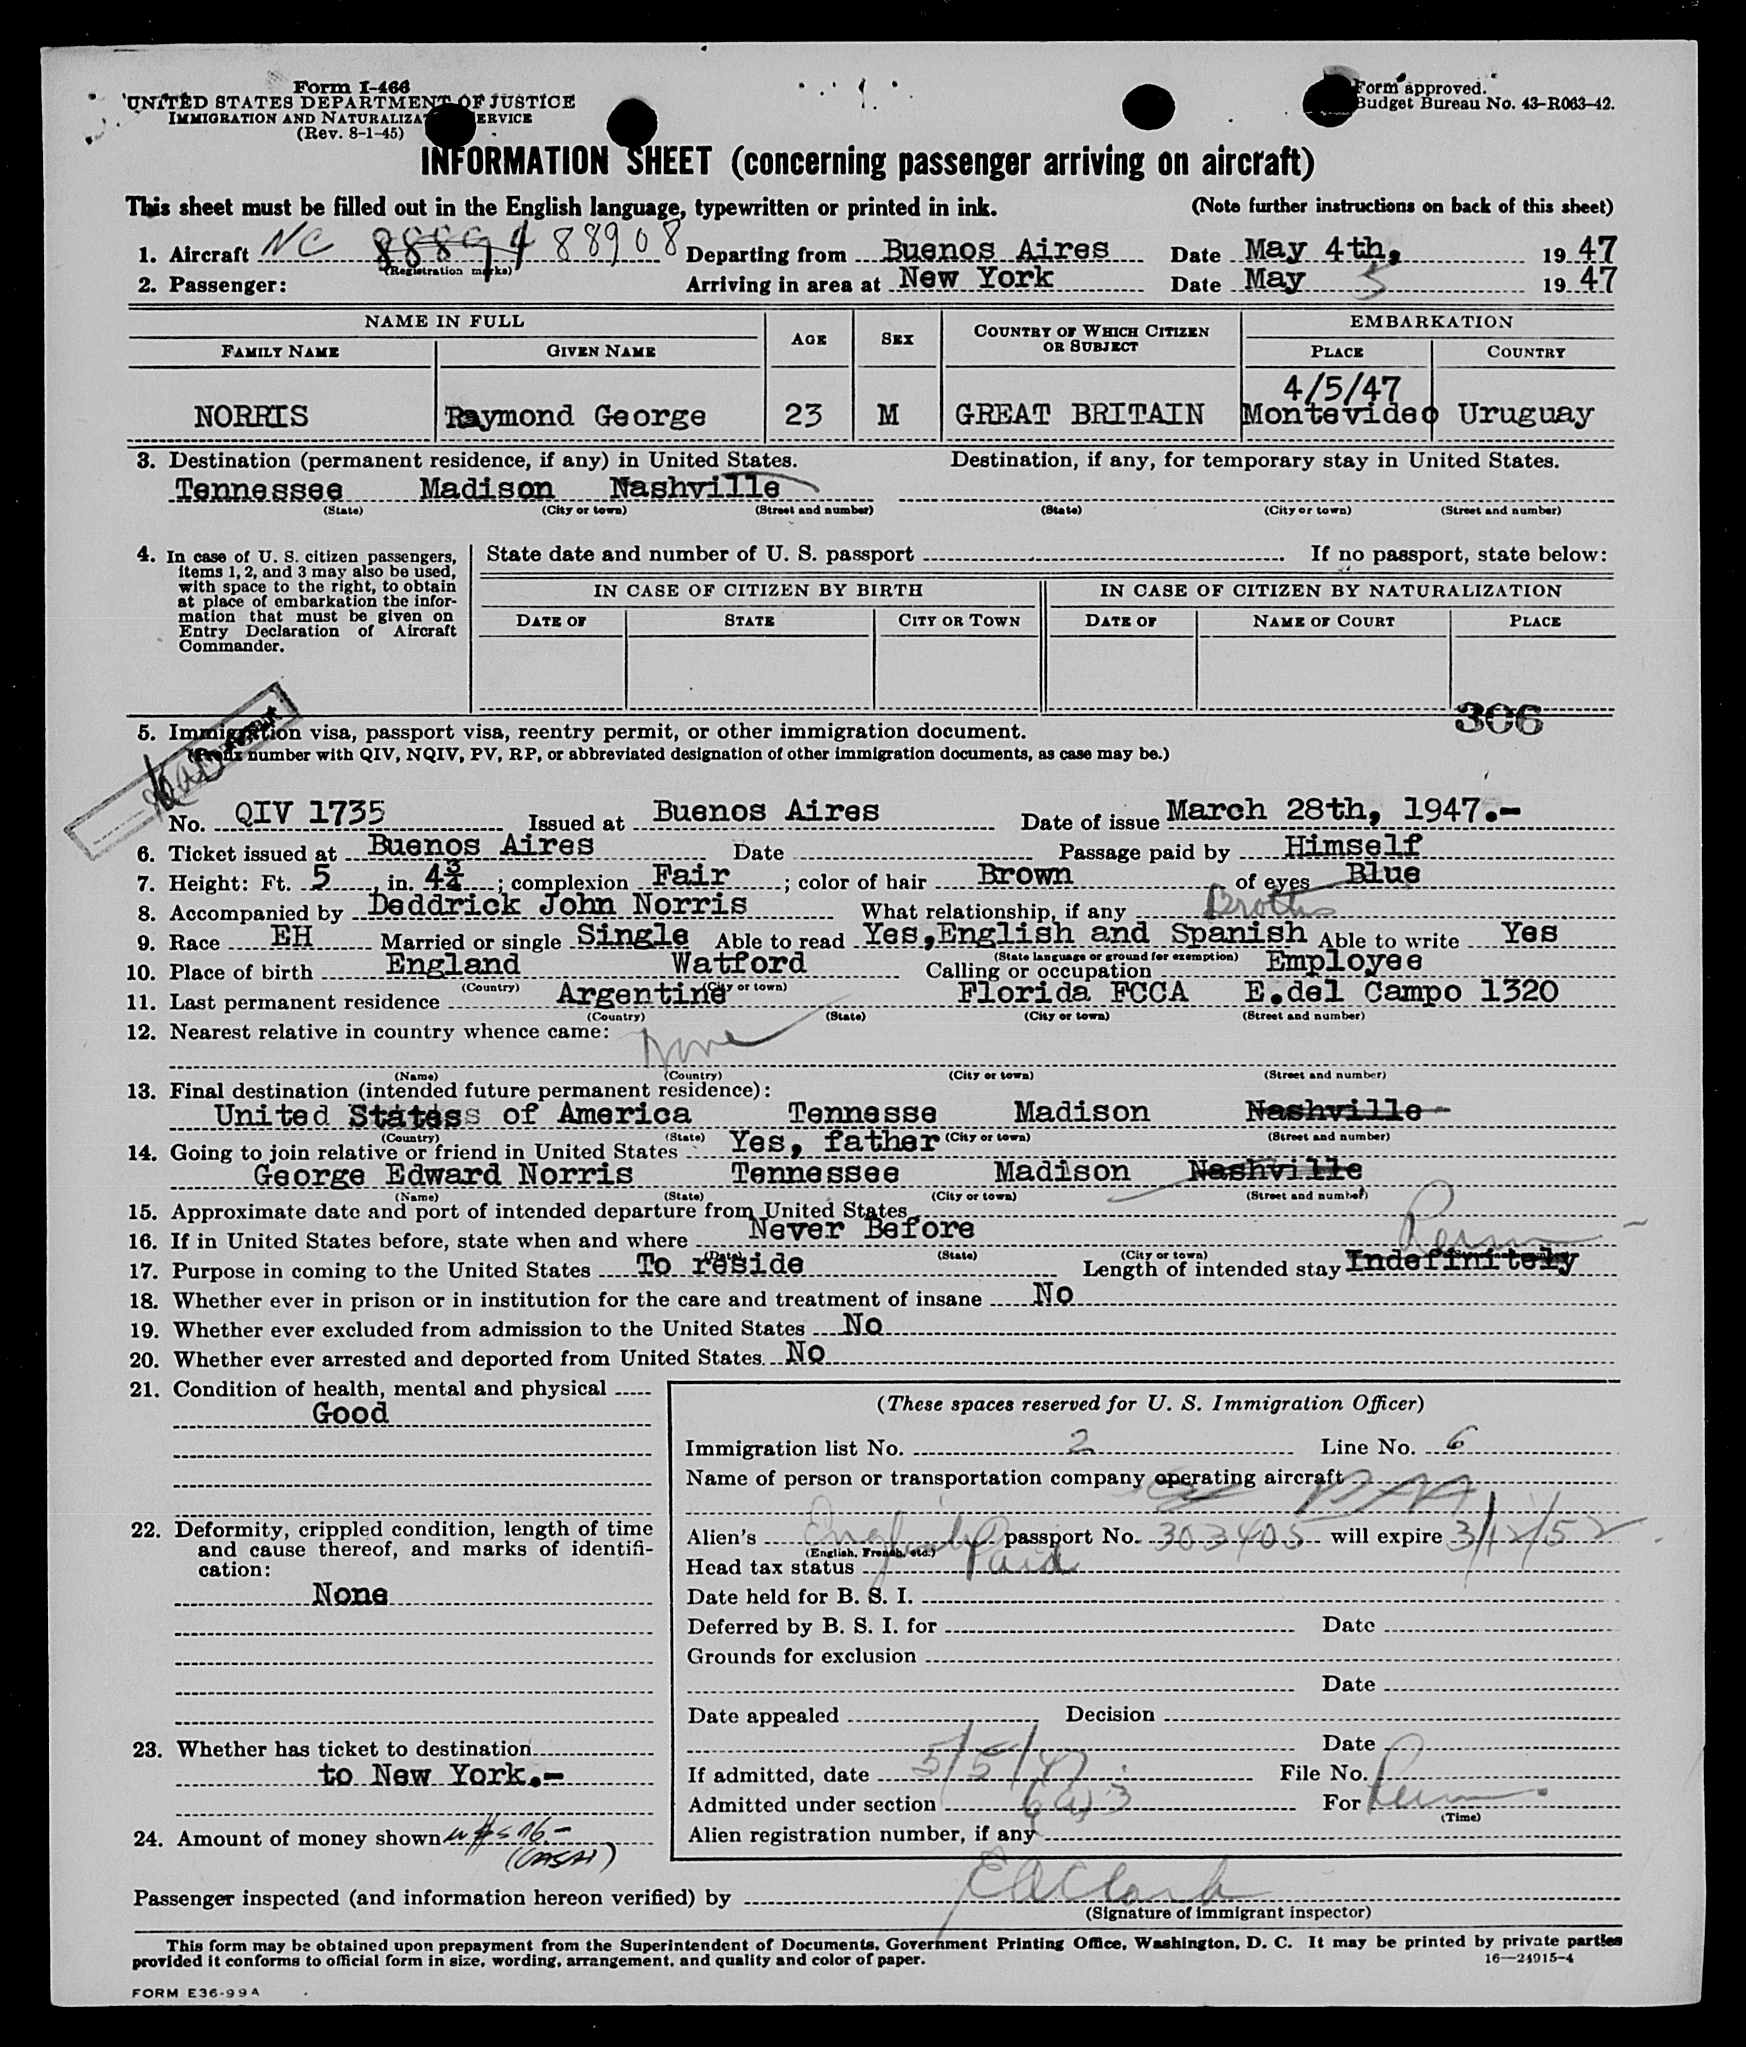 Form I-466
UNITED STATES DEPARTMENT OF JUSTICE
IMMIGRATION AND NATURALIZA ERVICE
(Rev. 8-1-45)
Form approved.
Budget Bureau No. 43-R063-42.
INFORMATION SHEET (concerning passenger arriving on aircraft)
This sheet must be filled out in the English language, typewritten or printed in ink. (Note further instructions on back of this sheet)
1. Aircraft NC 88894 88908 Departing from Buenos Aires Date May 4th, 19 47
(Registration marks)
2. Passenger: Arriving in area at New York Date May 5 19 47
NAME IN FULL AGE SEX COUNTRY OF WHICH CITIZEN OR SUBJECT EMBARKATION
FAMILY NAME GIVEN NAME PLACE COUNTRY
4/5/47
NORRIS Raymond George 23 M GREAT BRITAIN Montevideo Uruguay
3. Destination (permanent residence, if any) in United States. Destination, if any, for temporary stay in United States.
Tennessee Madison Nashville
(State) (City or town) (Street and number) (State) (City or town) (Street and number)
4. In case of U. S. citizen passengers, items 1, 2, and 3 may also be used, with space to the right, to obtain at place of embarkation the information that must be given on Entry Declaration of Aircraft Commander.
State date and number of U. S. passport If no passport, state below:
IN CASE OF CITIZEN BY BIRTH IN CASE OF CITIZEN BY NATURALIZATION
DATE OF STATE CITY OR TOWN DATE OF NAME OF COURT PLACE
306
5. Immigration visa, passport visa, reentry permit, or other immigration document.
number with QIV, NQIV, PV, RP, or abbreviated designation of other immigration documents, as case may be.)
No. QIV 1735 Issued at Buenos Aires Date of issue March 28th, 1947.-
6. Ticket issued at Buenos Aires Date Passage paid by Himself
7. Height: Ft. 5, in. 4¾; complexion Fair; color of hair Brown of eyes Blue
8. Accompanied by Deddrick John Norris What relationship, if any Brother
9. Race EH Married or single Single Able to read Yes, English and Spanish Able to write Yes
(State language or ground for exemption)
10. Place of birth England Watford Calling or occupation Employee
(Country) (City or town)
11. Last permanent residence Argentine Florida FCCA E.del Campo 1320
(Country) (State) (City or town) (Street and number)
12. Nearest relative in country whence came:
None
(Name) (Country) (City or town) (Street and number)
13. Final destination (intended future permanent residence):
United States of America Tennesse Madison Nashville
(Country) (State) (City or town) (Street and number)
14. Going to join relative or friend in United States Yes, father
George Edward Norris Tennessee Madison Nashville
(Name) (State) (City or town) (Street and number)
15. Approximate date and port of intended departure from United States
16. If in United States before, state when and where Never Before
(Date) (State) (City or town)
Perm
17. Purpose in coming to the United States To reside Length of intended stay Indefinitely
18. Whether ever in prison or in institution for the care and treatment of insane No
19. Whether ever excluded from admission to the United States No
20. Whether ever arrested and deported from United States. No
21. Condition of health, mental and physical
Good
22. Deformity, crippled condition, length of time and cause thereof, and marks of identification:
None
23. Whether has ticket to destination
to New York.-
24. Amount of money shown
(These spaces reserved for U. S. Immigration Officer)
Immigration list No. 2 Line No. 6
Name of person or transportation company operating aircraft
PAA
Alien's English passport No. 303405 will expire 3/12/52
(English, French, etc.)
Head tax status Paid
Date held for B. S. I.
Deferred by B. S. I. for Date
Grounds for exclusion
Date
Date appealed Decision
Date
If admitted, date 5/5/47 File No.
Admitted under section 6(a)3 For Perm
(Time)
Alien registration number, if any
Passenger inspected (and information hereon verified) by EAClark
(Signature of immigrant inspector)
This form may be obtained upon prepayment from the Superintendent of Documents, Government Printing Office, Washington, D. C. It may be printed by private parties
provided it conforms to official form in size, wording, arrangement, and quality and color of paper. 16—24915-4
FORM E36-99A